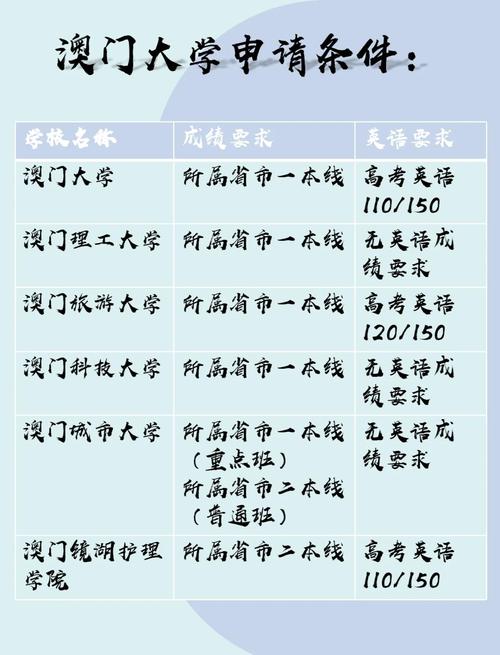 澳门大学申请条件：
学校名称 成绩要求 英语要求
澳门大学 所属省市一本线 高考英语
110/150
澳门理工大学 所属省市一本线 无英语成
绩要求
澳门旅游大学 所属省市一本线 高考英语
120/150
澳门科技大学 所属省市一本线 无英语成
绩要求
澳门城市大学 所属省市一本线 无英语成
（重点班） 绩要求
所属省市二本线
（普通班）
澳门镜湖护理 所属省市二本线 高考英语
学院 110/150